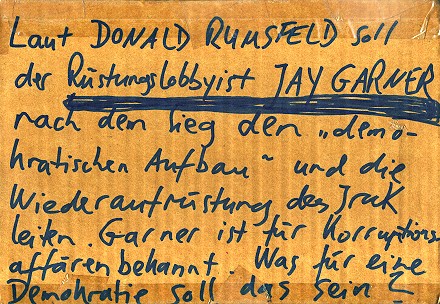 Laut DONALD RUMSFELD soll
der Rüstungslobbyist JAY GARNER
nach dem Sieg den „demo-
kratischen Aufbau“ und die
Wiederaufrüstung des Irak
leiten. Garner ist für Korruptions
affären bekannt. Was für eine
Demokratie soll das sein?